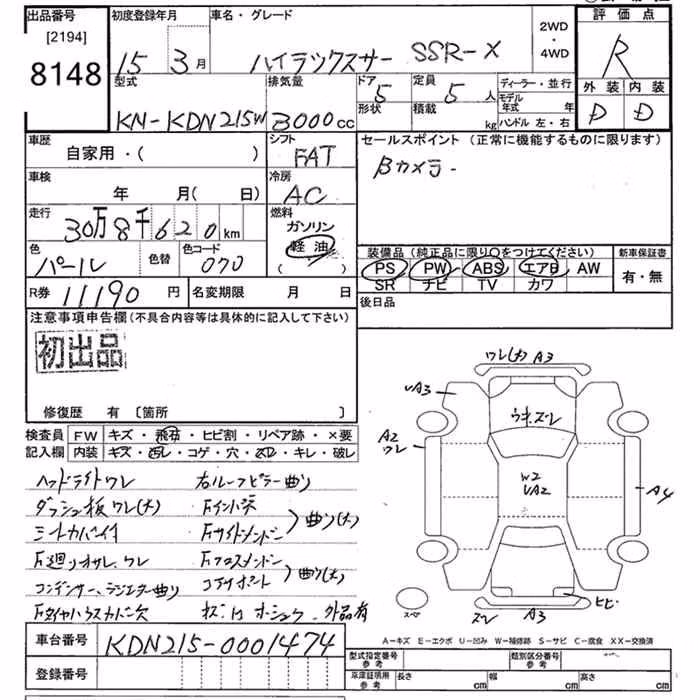 出品番号
[2194]
8148
初度登録年月
15 3月
車名・グレード
ハイラックスサーフ SSR-X
2WD・4WD
評価点
R
外装 内装
D D
型式
KN-KDN215W
排気量
3000cc
ドア 5
形状
定員 5人
積載 kg
ディーラー・並行
モデル年式 年
ハンドル 左・右
車歴
自家用・( )
シフト
FAT
セールスポイント (正常に機能するものに限ります)
Bカメラ
車検
年 月( 日)
冷房
AC
走行
30万8千620km
燃料
ガソリン
軽油
( )
色
パール
色替
色コード
070
装備品 (純正品に限り○をつけてください)
PS PW ABS エアB AW
SR ナビ TV カワ
新車保証書
有・無
R券 11190円
名変期限 月 日
後日品
注意事項申告欄(不具合内容等は具体的に記入して下さい)
初出品
修復歴 有 〔箇所 〕
検査員記入欄
FW キズ・飛石・ヒビ割・リペア跡・×要
内装 キズ・汚レ・コゲ・穴・スレ・キレ・破レ
ヘッドライトワレ 右ルーフピラー曲り
ダッシュ板ワレ(大) Fインパネ
シートカバー付 Fサイドメンバー 曲り(大)
F廻りオサレ、ワレ Fクロスメンバー
コンデンサー、ラジエター曲り コアサポート 曲り(大)
ワレ(大) A3
UA3
ウキ、ズレ
A2
ワレ
W2
UA2
A4
ヒビ
スペア
ズレ
A3
A-キズ E-エクボ U-凹み W-補修跡 S-サビ C-腐食 XX-交換済
車台番号 KDN215-0001474
登録番号
型式指定番号 参考
類別区分番号 参考
車庫証明用 参考
長さ cm 幅 cm 高さ cm